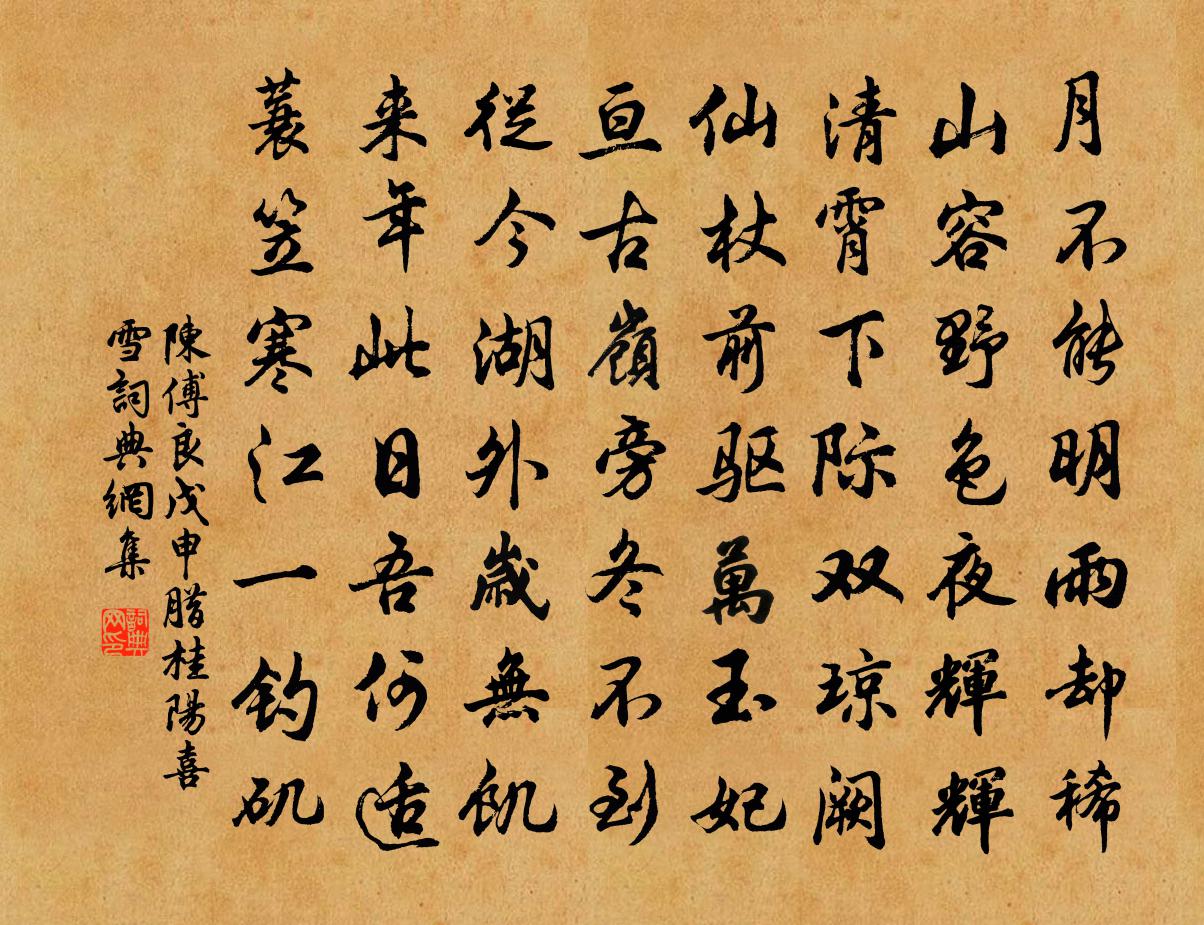 月不能明雨却稀
山容野色夜輝輝
清霄下际双琼阙
仙杖前驱萬玉妃
亘古嶺旁冬不到
從今湖外歲無飢
来年此日吾何适
蓑笠寒江一钓矶
陳傅良戊申腊桂陽喜
雪詞典網集
詞典网印